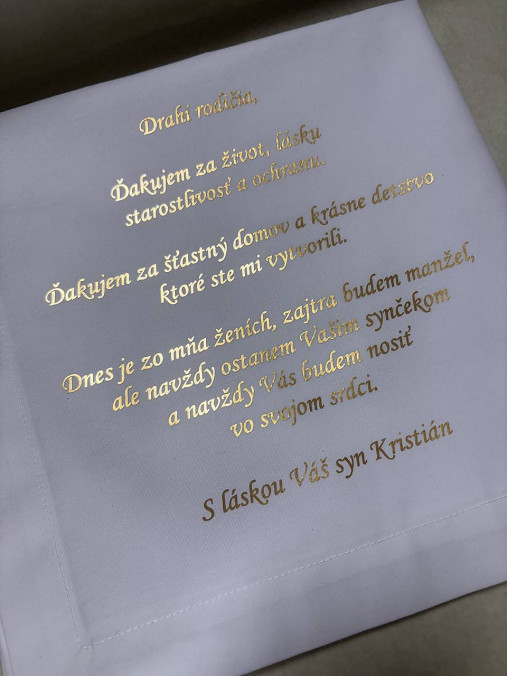 Drahí rodičia,
Ďakujem za život, lásku
starostlivosť a ochranu.
Ďakujem za šťastný domov a krásne detstvo
ktoré ste mi vytvorili.
Dnes je zo mňa ženích, zajtra budem manžel,
ale navždy ostanem Vašim synčekom
a navždy Vás budem nosiť
vo svojom srdci.
S láskou Váš syn Kristián